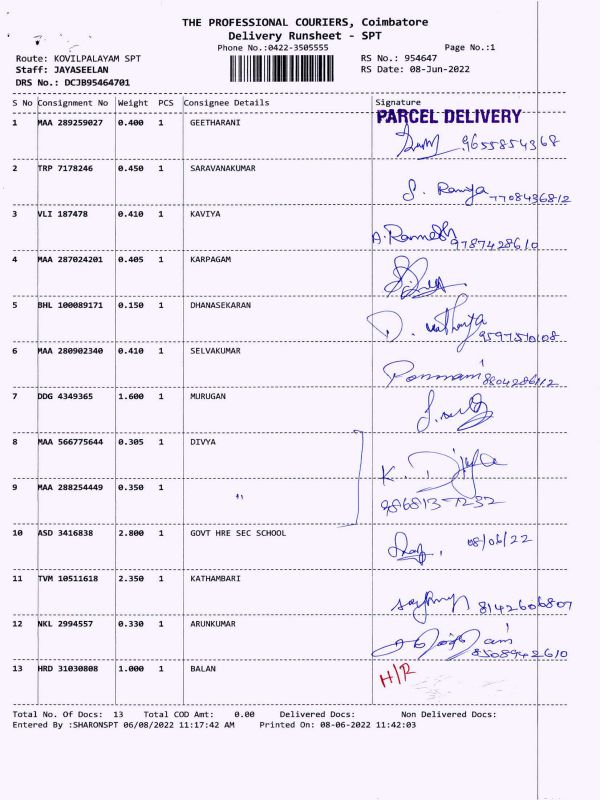 THE PROFESSIONAL COURIERS, Coimbatore
Delivery Runsheet - SPT
Phone No.:0422-3505555 Page No.:1
Route: KOVILPALAYAM SPT RS No.: 954647
Staff: JAYASEELAN RS Date: 08-Jun-2022
DRS No.: DCJB95464701
S No Consignment No Weight PCS Consignee Details Signature
PARCEL DELIVERY
1 MAA 289259027 0.400 1 GEETHARANI
9655854368
2 TRP 7178246 0.450 1 SARAVANAKUMAR
S. Ramya 7708436812
3 VLI 187478 0.410 1 KAVIYA
A. Ramesh 9787428610
4 MAA 287024201 0.405 1 KARPAGAM
5 BHL 100089171 0.150 1 DHANASEKARAN
D. 9597510108
6 MAA 280902340 0.410 1 SELVAKUMAR
Ponmani 8804286112
7 DDG 4349365 1.600 1 MURUGAN
8 MAA 566775644 0.305 1 DIVYA
K. Divya
9 MAA 288254449 0.350 1 "
986813-7232
10 ASD 3416838 2.800 1 GOVT HRE SEC SCHOOL
08/06/22
11 TVM 10511618 2.350 1 KATHAMBARI
8142606807
12 NKL 2994557 0.330 1 ARUNKUMAR
8508942610
13 HRD 31030808 1.000 1 BALAN H/R
Total No. Of Docs: 13 Total COD Amt: 0.00 Delivered Docs: Non Delivered Docs:
Entered By :SHARONSPT 06/08/2022 11:17:42 AM Printed On: 08-06-2022 11:42:03